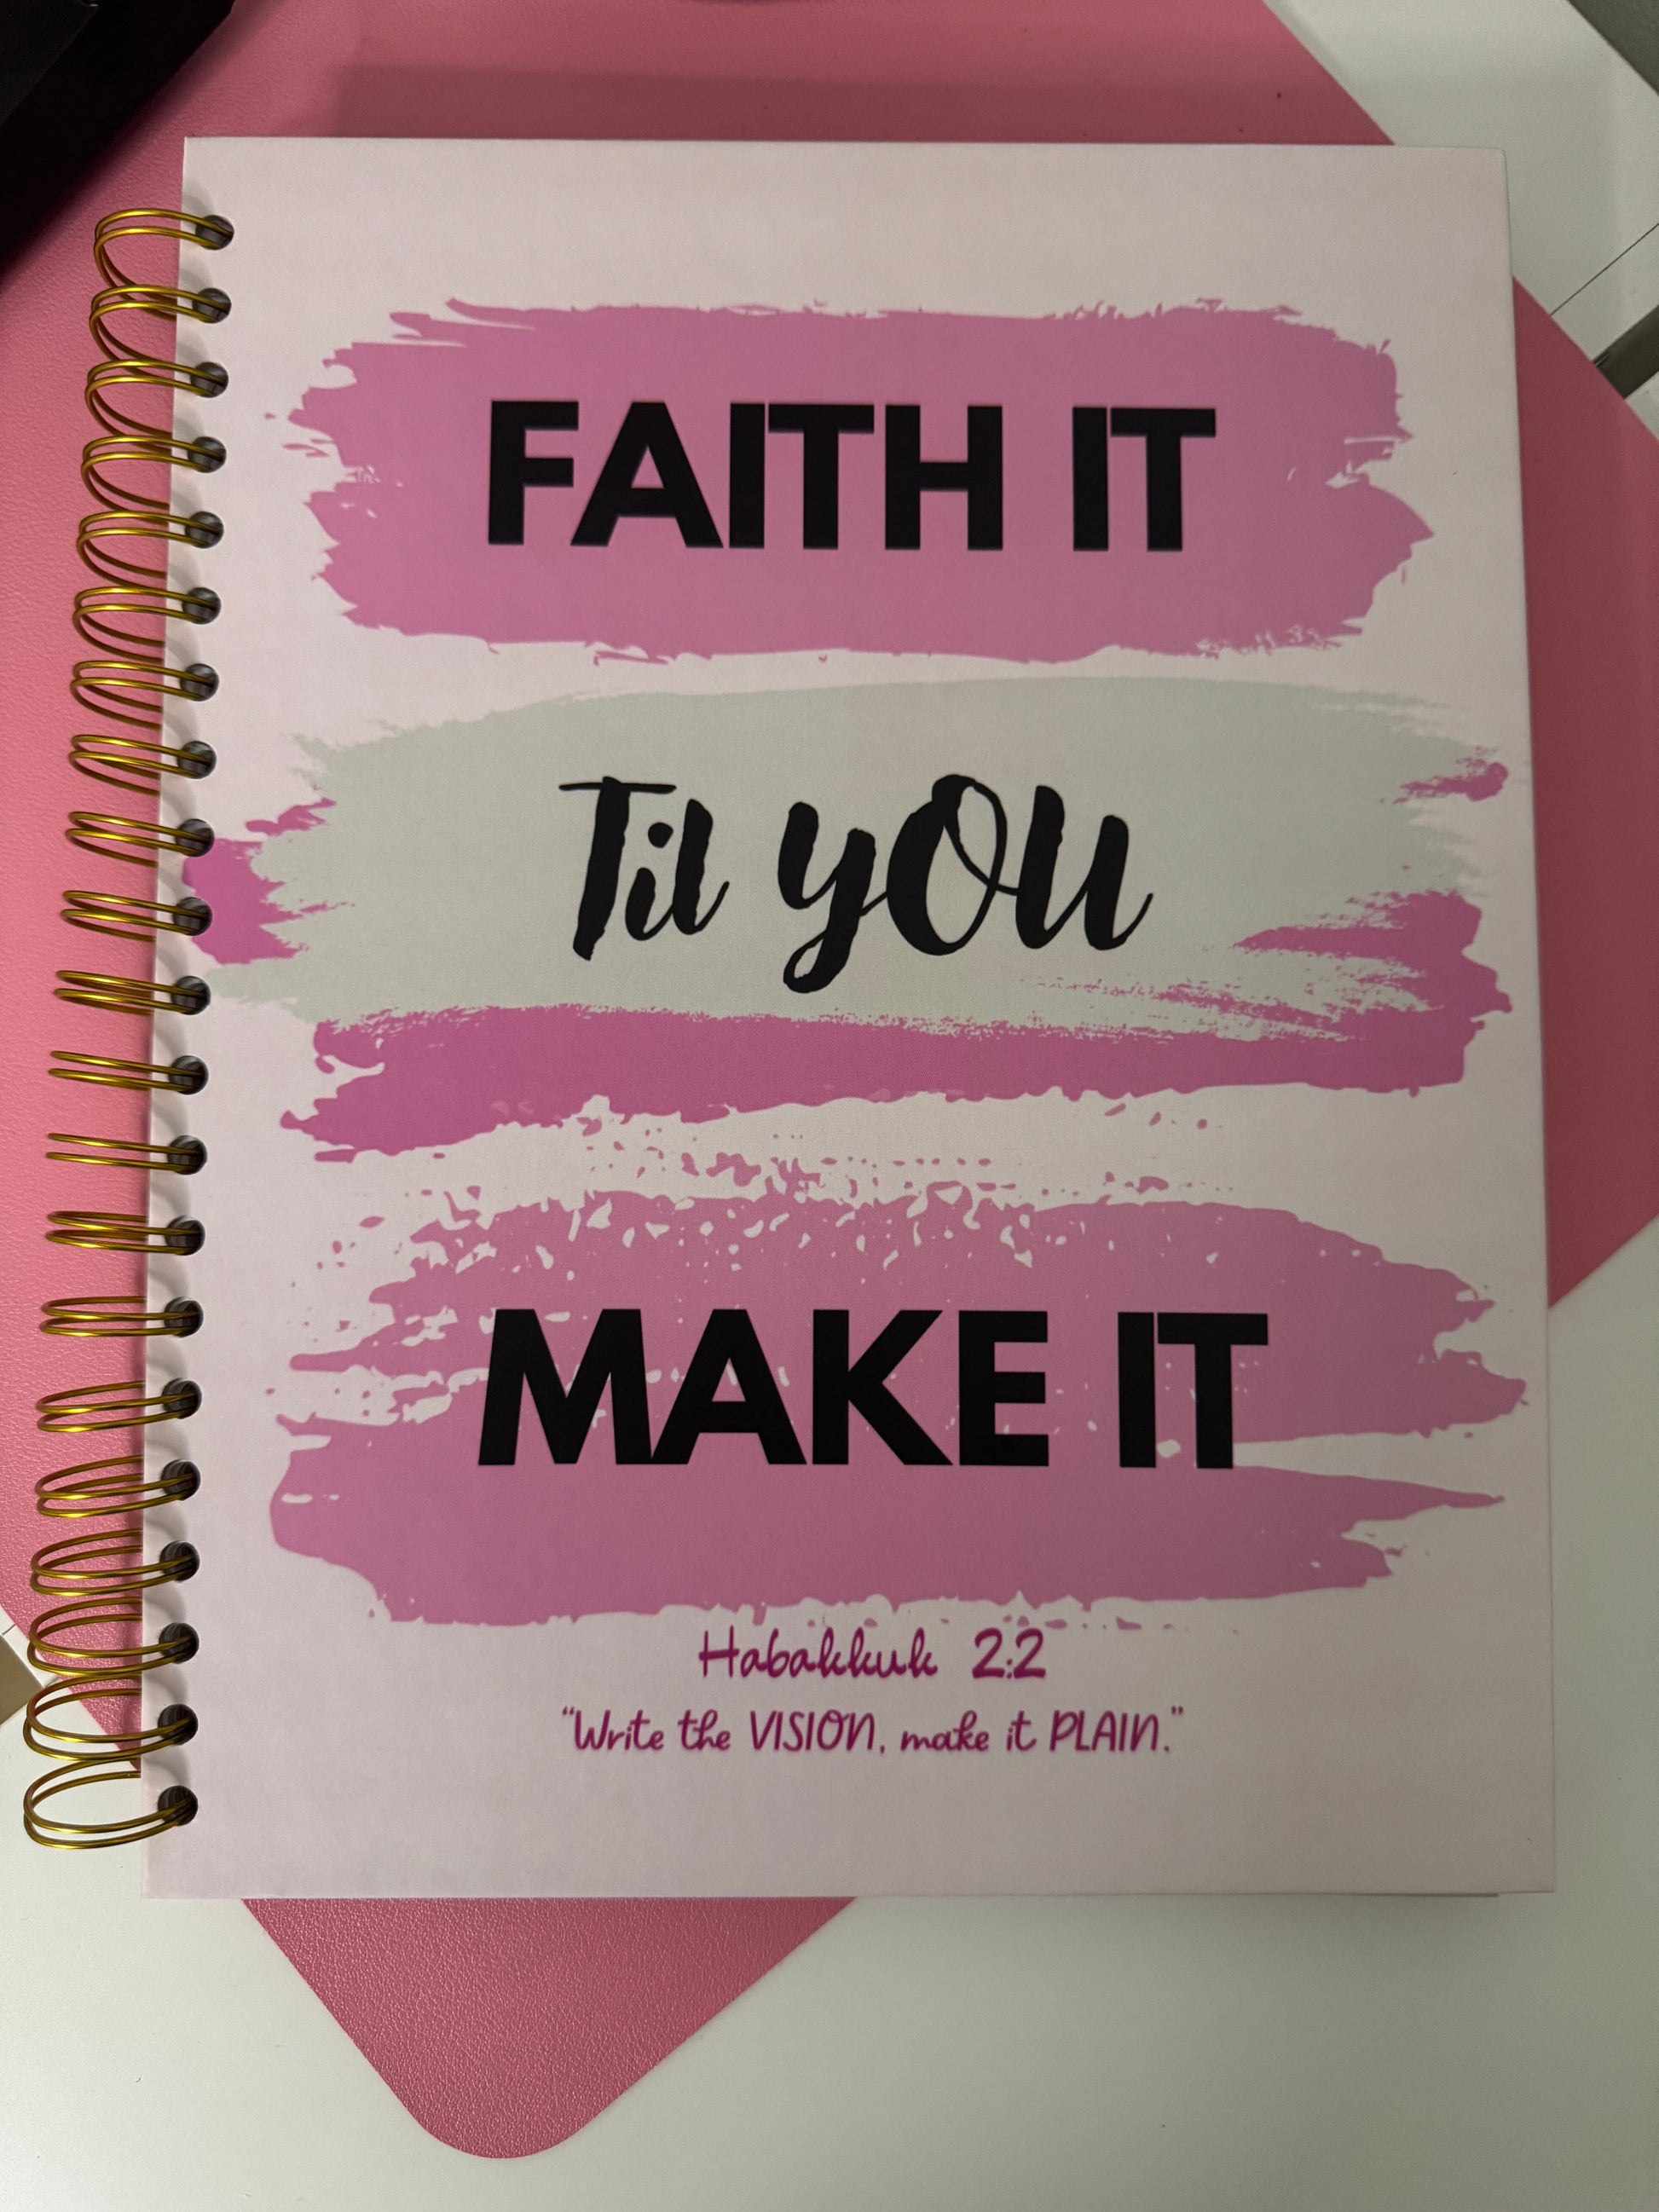 FAITH IT
Til yOU
MAKE IT
Habakkuk 2:2
“Write the VISION, make it PLAIN.”